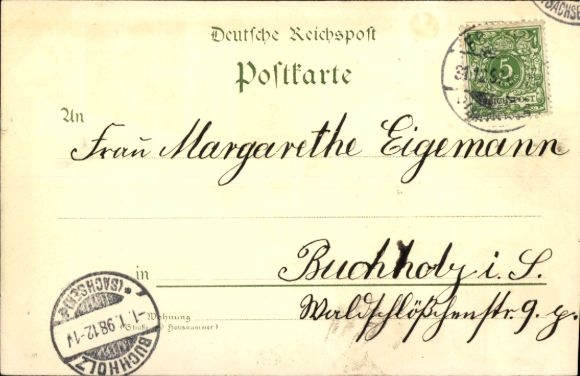 Deutsche Reichspost
Postkarte
An
Frau Margarethe Eigemann
in Buchholz i. S.
Wohnung
(Straße und Hausnummer)
Waldschlößchenstr. 9. p.
5
REICHSPOST
31.12.
(SACHSEN)
-1.1.98.12-1N
BUCHHOLZ
(SACHSEN)